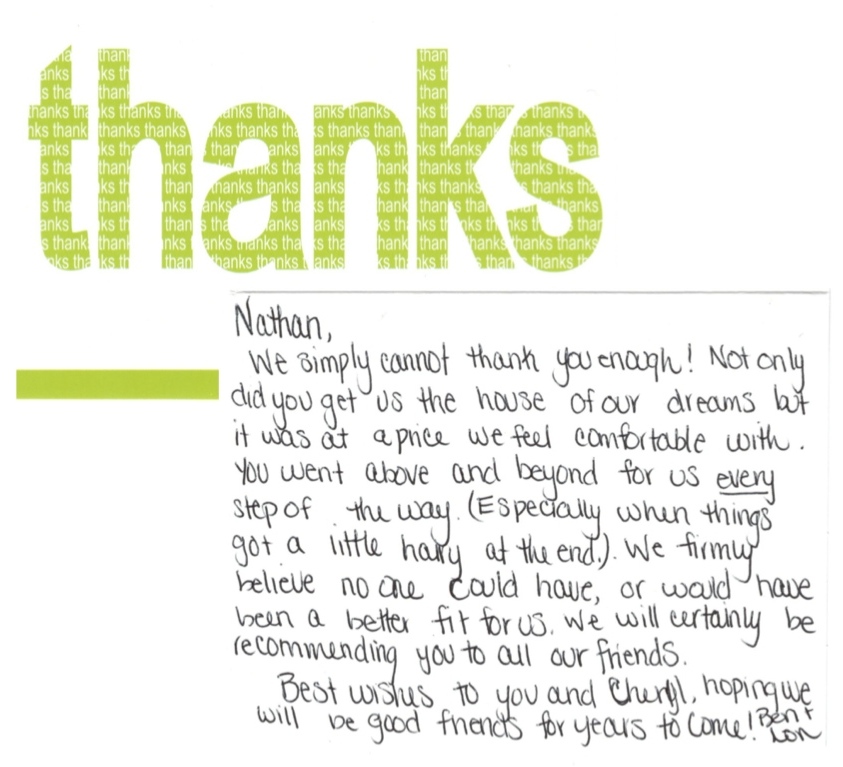 thanks
Nathan,
We simply cannot thank you enough! Not only
did you get us the house of our dreams but
it was at a price we feel comfortable with.
You went above and beyond for us every
step of the way. (Especially when things
got a little hairy at the end.). We firmly
believe no one could have, or would have
been a better fit for us. We will certainly be
recommending you to all our friends.
Best wishes to you and Cheryl, hoping we
will be good friends for years to come! Ben +
Lori